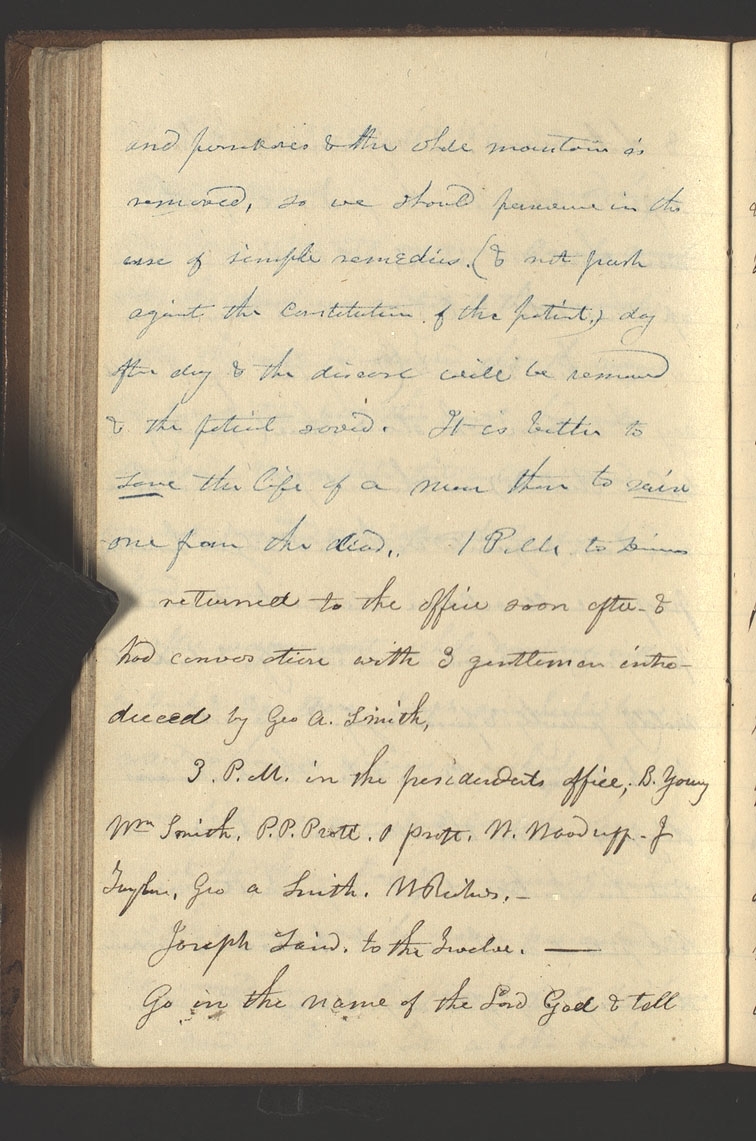 and perseveres & the whole mountain is
removed, so we should persevere in the
use of simple remedies. (& not push
against the constitution of the patient.) day
after day & the disease will be removed
& the patient saved. It is better to
save the life of a man than to raise
one from the dead,. 1 P.M. to dinner
returned to the office soon after & 
had conversation with 3 gentleman intro-
duced by Geo A. Smith,
3. P.M. in the presidents office, B. Young
Wm Smith. P.P. Pratt. O pratt. W. Woodruff - J
Taylor. Geo a Smith. W Richards. -
Joseph Said. to the Twelve. —
Go in the name of the Lord God & tell